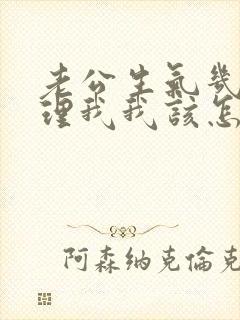 老公生氣幾
理我我該怎
阿森納克倫克